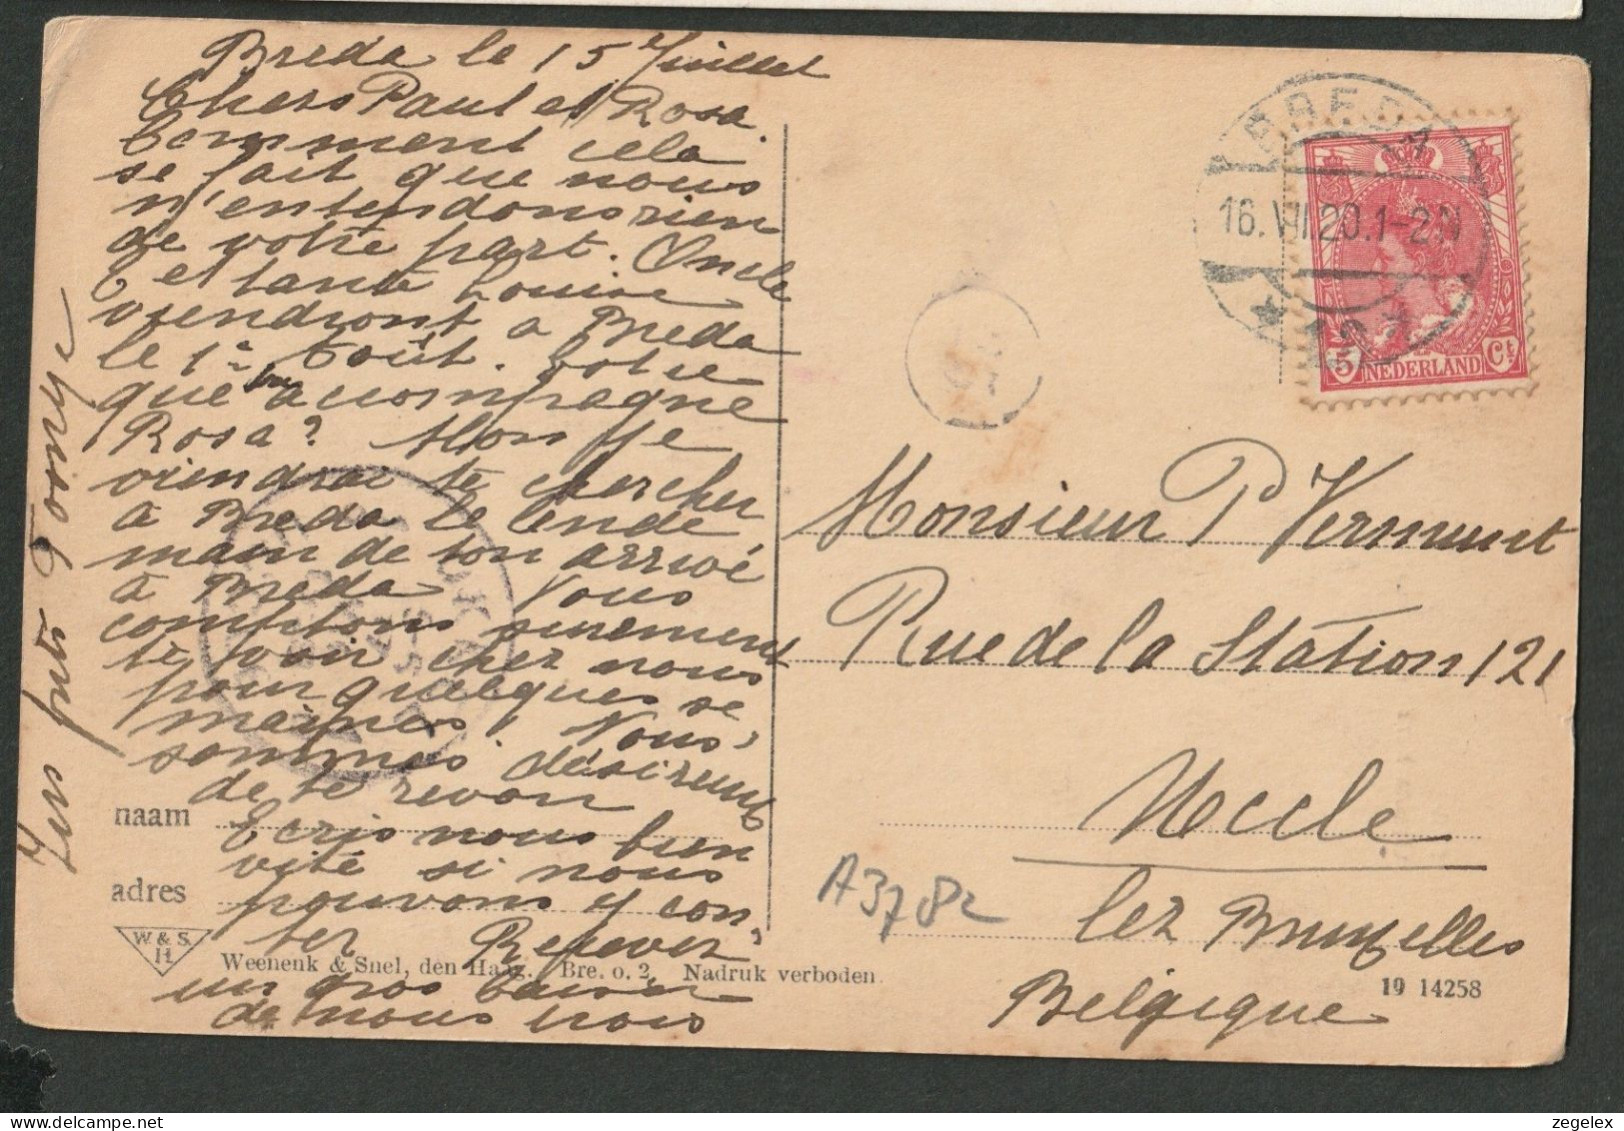 Breda le 15 Juillet
Chers Paul et Rosa.
Comment cela
se fait que nous
n'entendons rien
de votre part. Oncle
et tante Louise
viendront a Breda
le 1er Août. Est ce
que tu accompagne
Rosa? Alors je
viendrai te chercher
à Breda le lende
main de ton arrivé
a Breda Nous
comptons surement
te voir chez nous
pour quelques se
maines. Nous
sommes désireux
de te revoir
Ecris nous bien
vite si nous
pouvons y con,
ter Recever
un gros baiser
de nous trois
naam
adres
W. & S.
H.
Weenenk & Snel, den Haag. Bre. o. 2. Nadruk verboden.
BREDA
16.VII.20.1-2N
5 NEDERLAND Ct
Monsieur P Vermeent
Rue de la Station 121
Uccle
lez Bruxelles
Belgique
A3782
19 14258